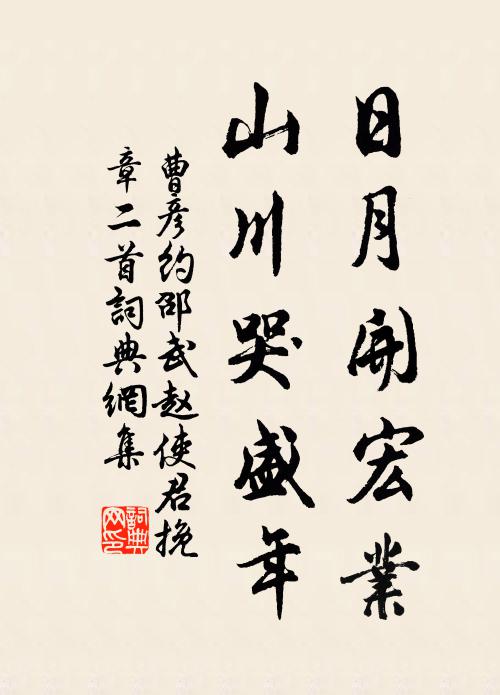 日月開宏業
山川哭盛年
曹彦約邵武赵使君挽
章二首詞典網集
詞典
网印